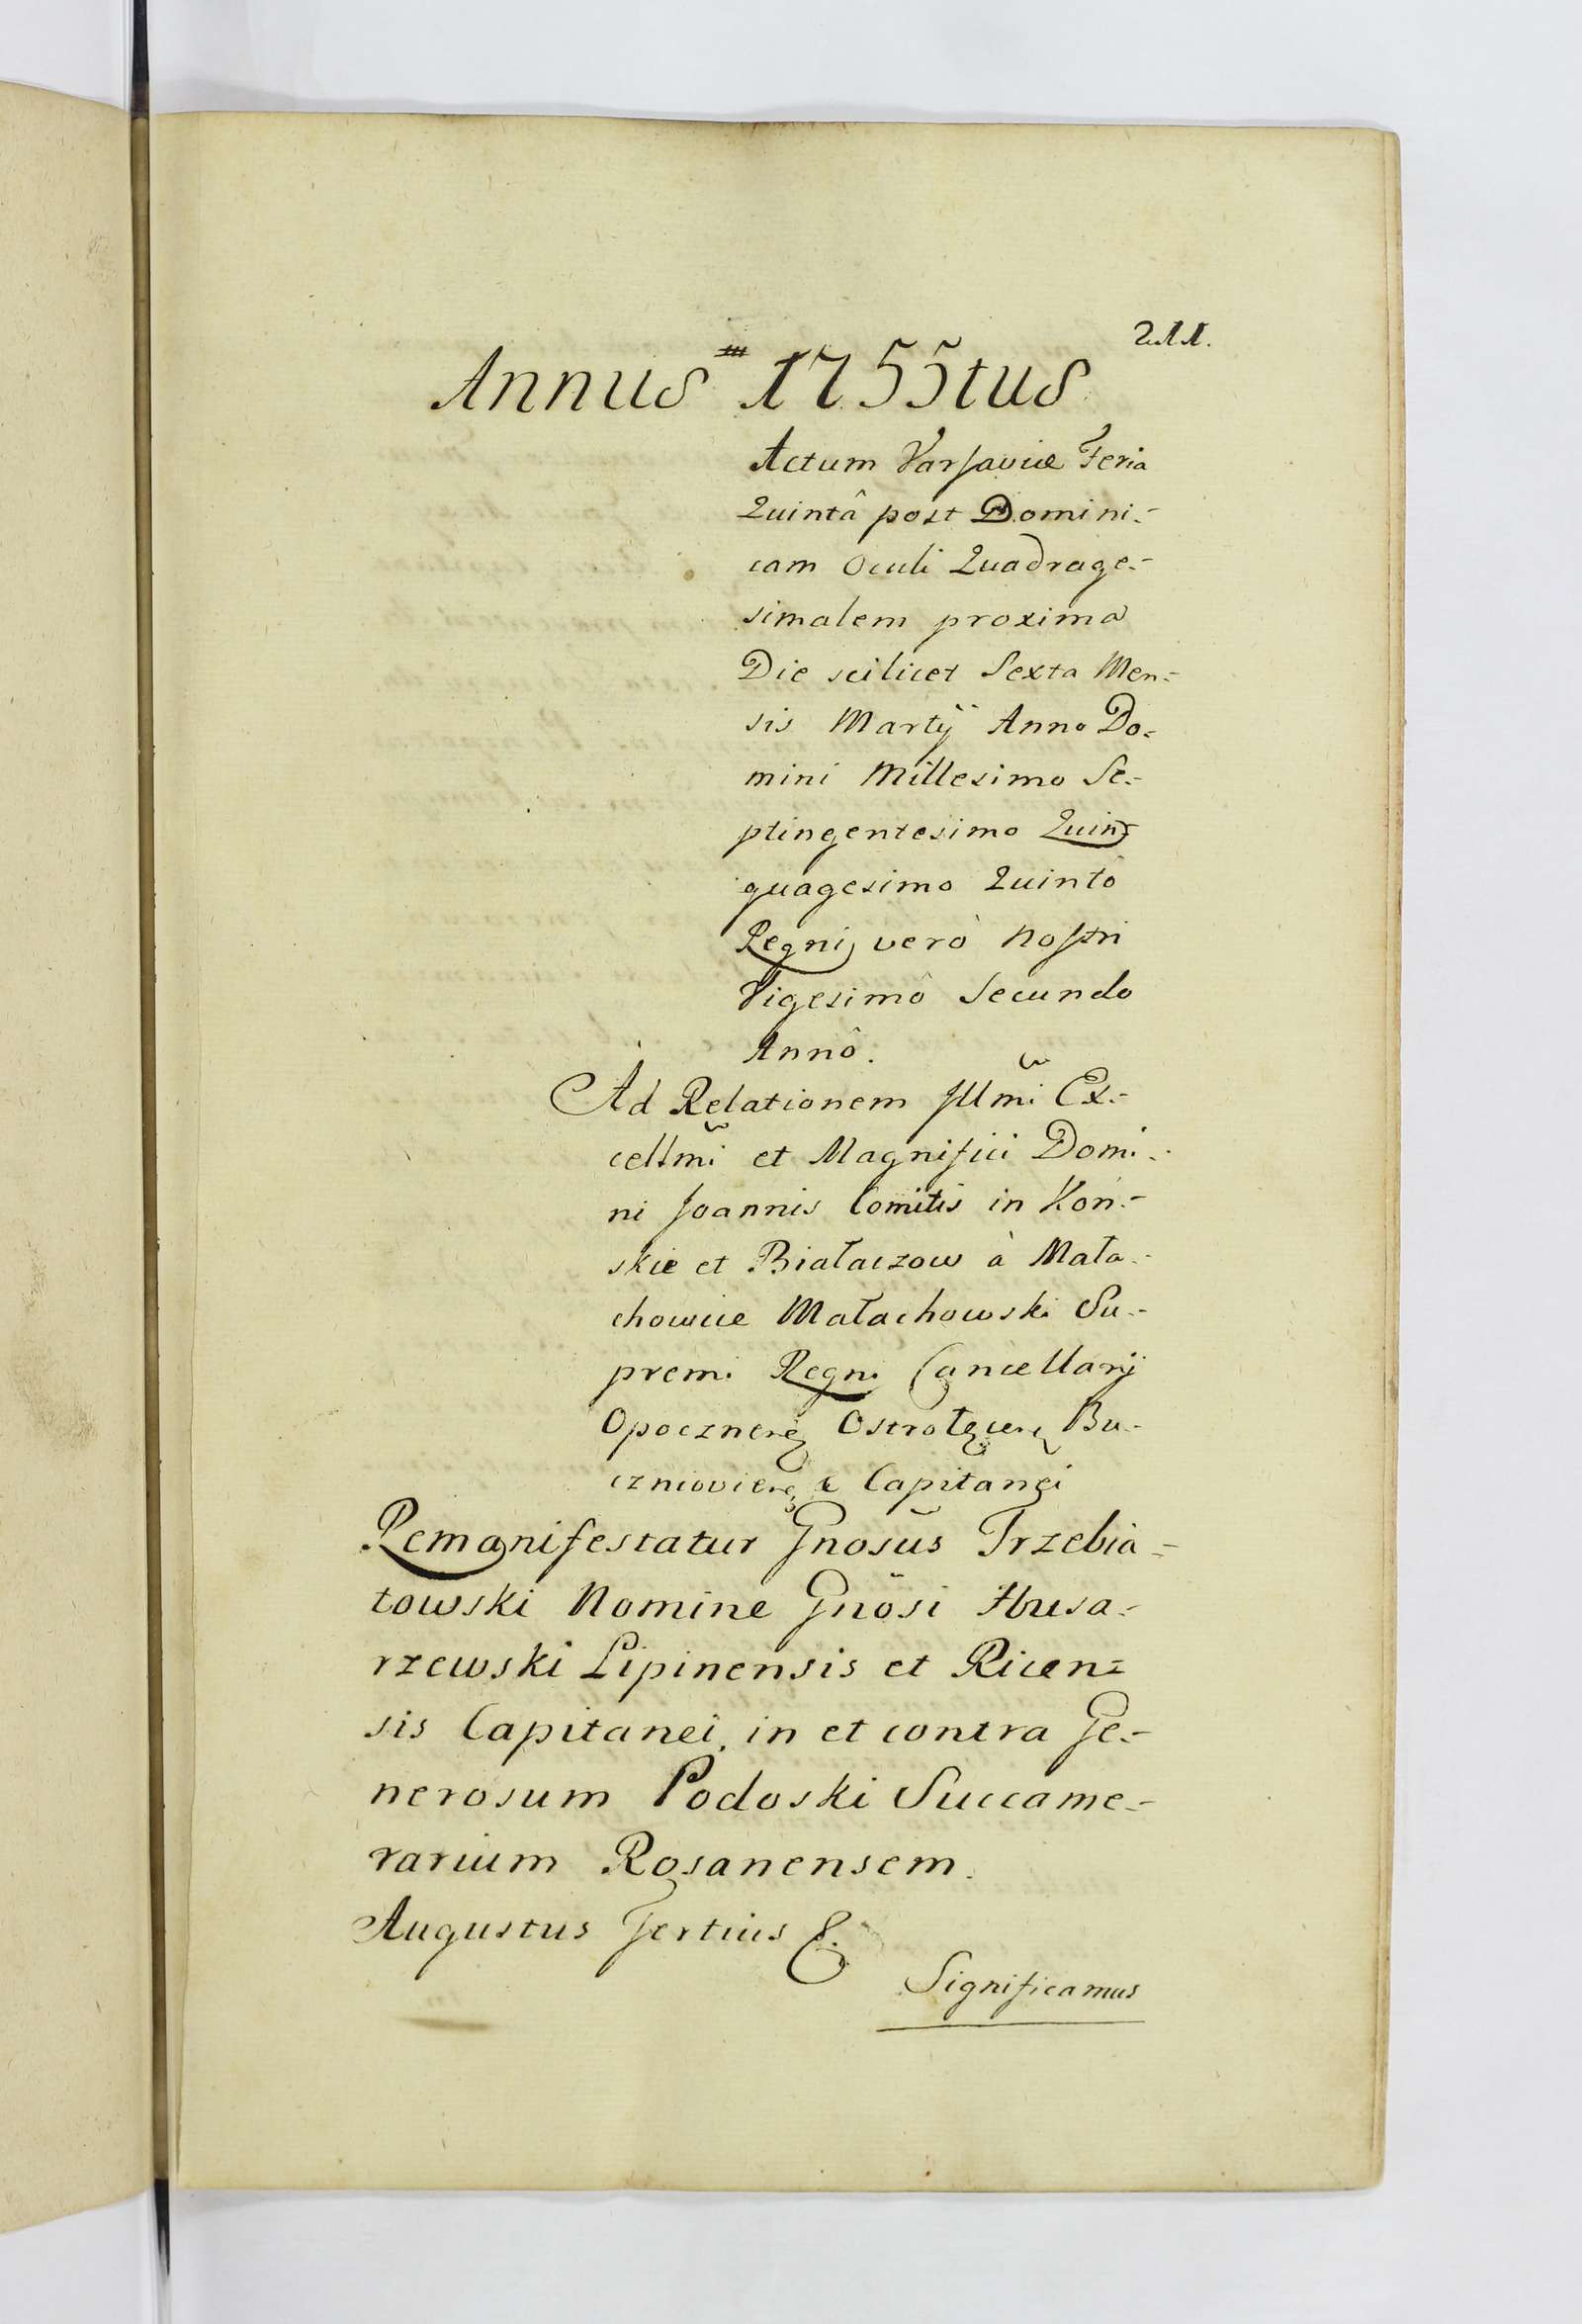 Annus 1755tus
Actum Varsaviæ Feria
Quintâ post Domini-
cam Oculi Quadrage-
simalem proxima
Die scilicet Sexta Men-
sis Martÿ Anno Do-
mini Millesimo Se-
ptingentesimo Quin-
quagesimo Quintô
Regni verò Nostri
Vigesimô Secundo
Annô.
Ad Relationem Illm̃i Ex-
cellm̃i et Magnifici Domi-
ni Joannis Comitis in Koń-
skie et Białaczow à Mała-
chowice Małachowski Su-
premi Regni Cancellarÿ
Opocznen Ostrołęcen Bu-
czniovien & Capitanei
Remanifestatur Gnosũs Trzebia-
towski Nomine Gnõsi Husa-
rzewski Lipinensis et Ricen-
sis Capitanei, in et contra Ge-
nerosum Podoski Succame-
rarium Rosanensem.
Augustus Tertius &.
Significamus